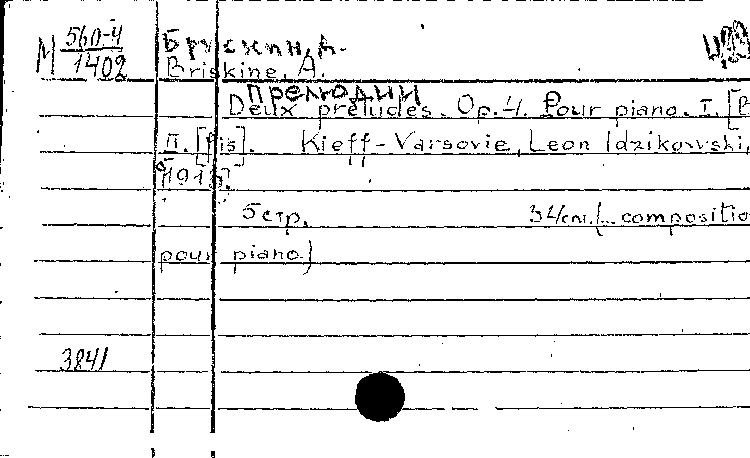 М 560-4
1402
Брускин, А.
Briskine, A.
Прелюдии
Deux preludes. Op. 4. Pour piano. I. [B
II. [fis]. Kieff-Varsovie, Leon Idzikowski,
5 стр. 34 см. (... compositio
pour piano)
3841